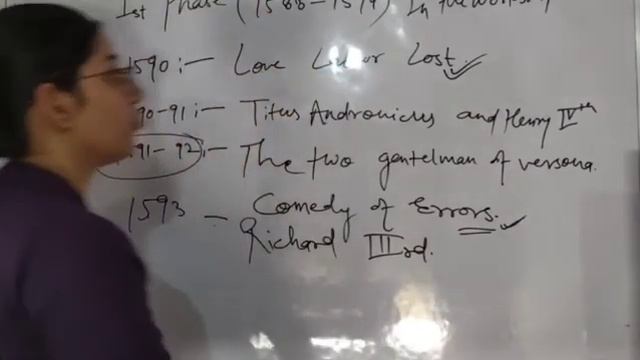 1st Phase (1588-1594) In the workshop
1590:- Love Labor Lost.
90-91:- Titus Andronicus and Henry IVth
91-92:- The two gentelman of versona.
1593 - Comedy of Errors.
Richard IIIrd.